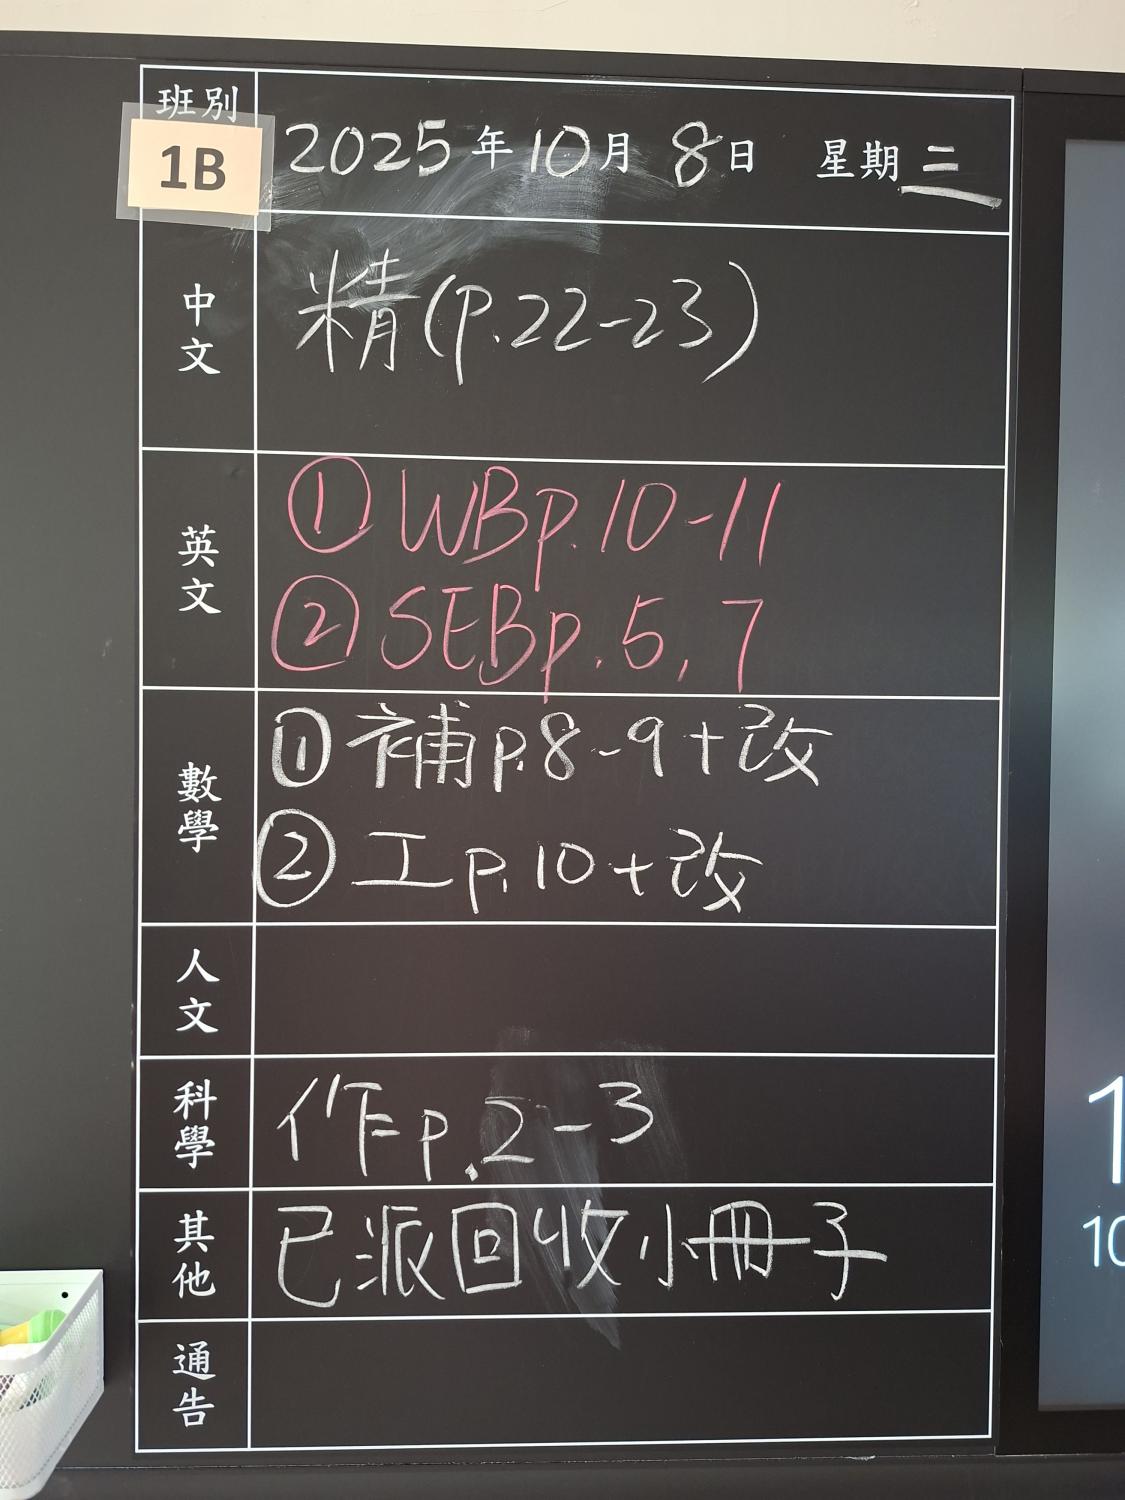 班別
1B
2025年10月8日 星期二
中文
精(p.22-23)
英文
① WB p.10-11
② SEB p.5,7
數學
① 補p.8-9+改
② 工p.10+改
人文
科學
作p.2-3
其他
已派回收小冊子
通告
1
10